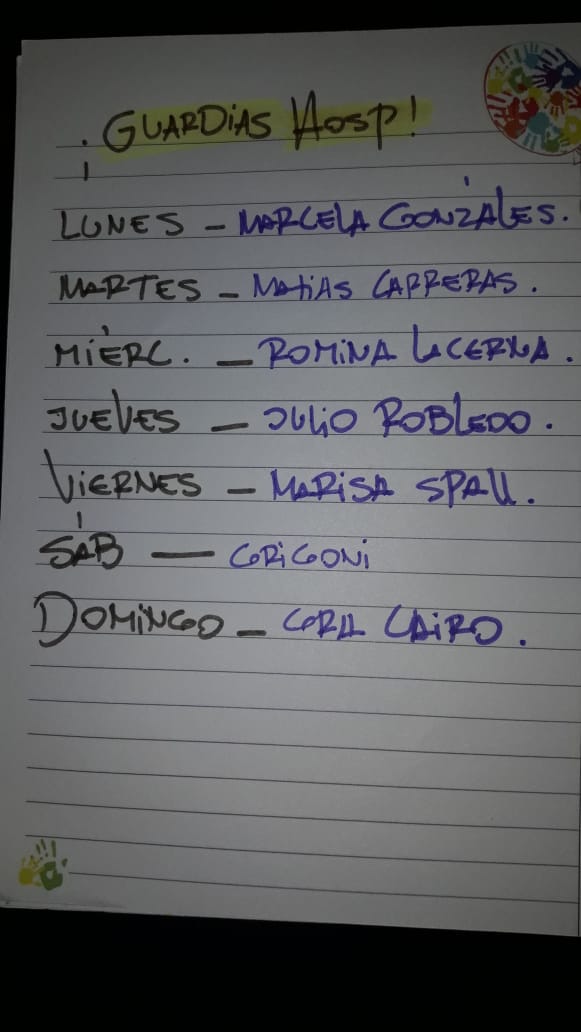 ¡GUARDiAS HOSP!
LUNES - MARCELA GONZÁLES.
MARTES - MAtiAS CARRERAS.
MiÉRC. - ROMiNA LACERNA.
JUEVES - JULiO ROBLEDO.
ViERNES - MARiSA SPALL.
SÁB - GRiGONi
DOMiNGO - CAiRO.